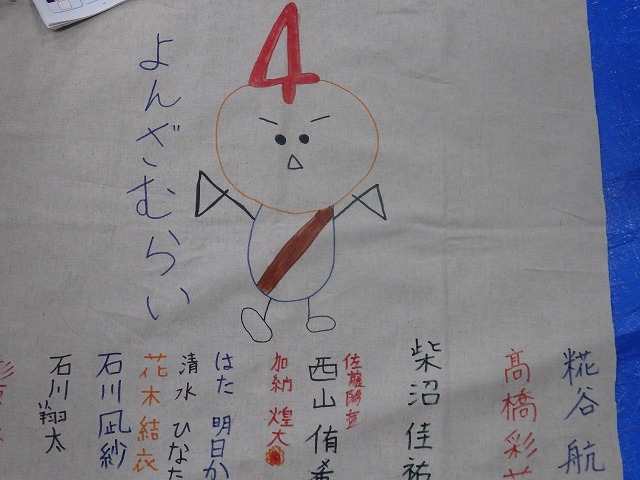 4
よんざむらい
糀谷 航
高橋 彩
柴沼 佳祐
西山 侑希
加納 煌大
はた 明日か
清水 ひなた
花木 結衣
石川 凪紗
石川 翔太